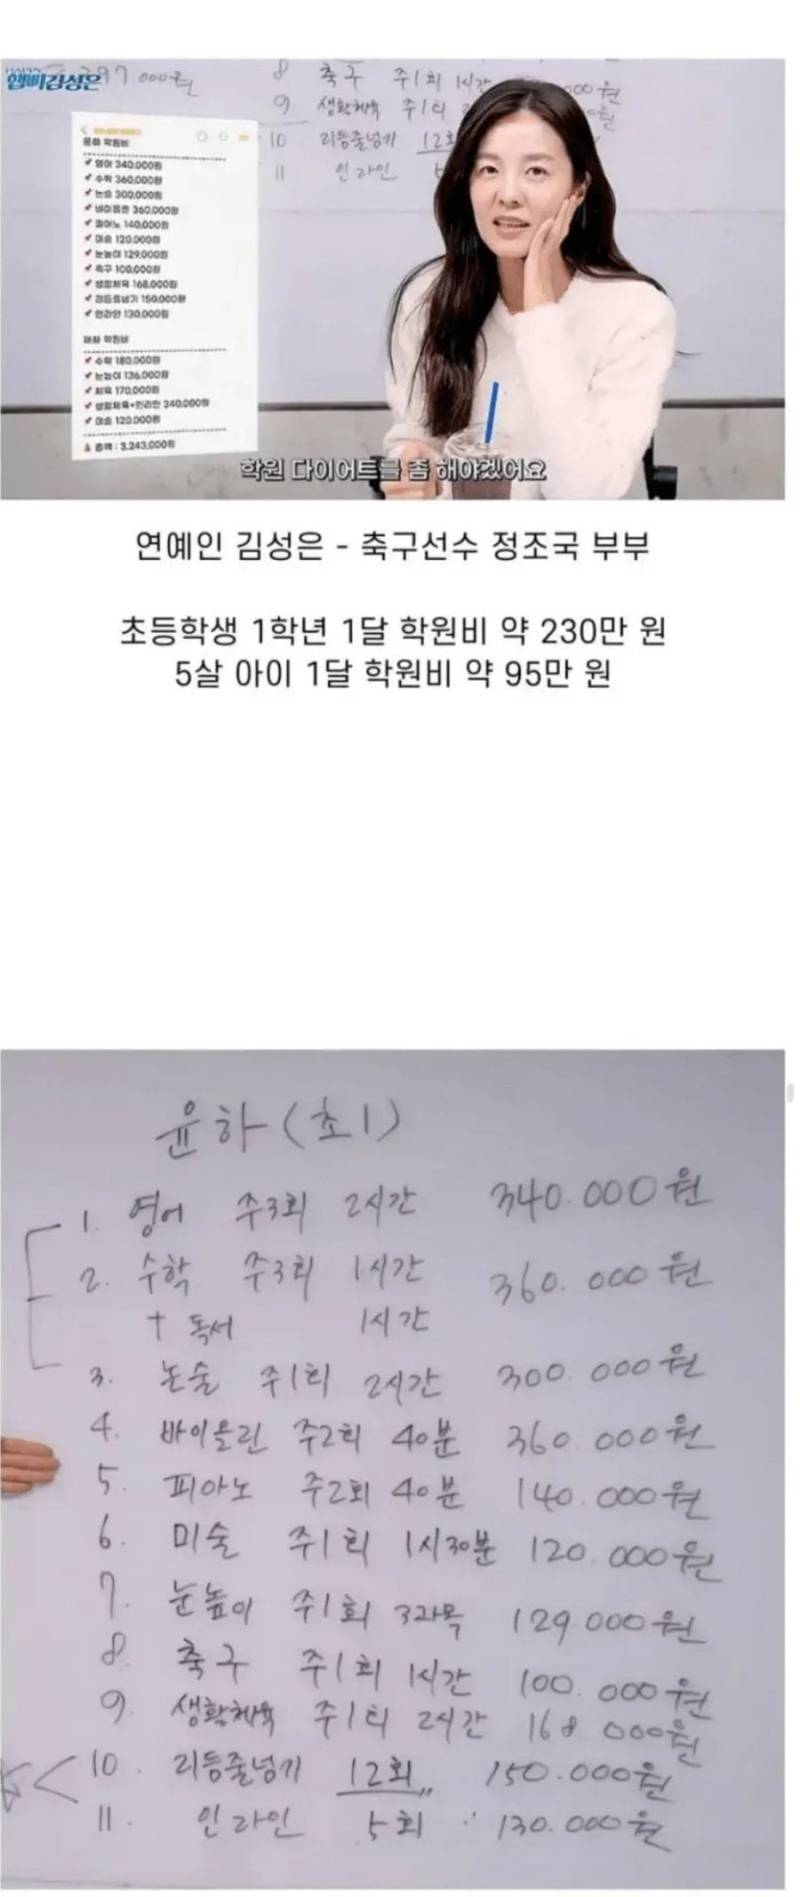 햅삐김성은
297.000원
8 축구 주1회 1시간 000원
9 생활체육 주1회
10 리듬줄넘기 12회
11 인라인
윤하 학원비
영어 340,000원
수학 360,000원
논술 300,000원
바이올린 360,000원
피아노 140,000원
미술 120,000원
눈높이 129,000원
축구 100,000원
생활체육 168,000원
리듬줄넘기 150,000원
인라인 130,000원
재하 학원비
수학 180,000원
눈높이 136,000원
체육 170,000원
생활체육+인라인 340,000원
미술 120,000원
총액 : 3,243,000원
학원 다이어트를 좀 해야겠어요
연예인 김성은 - 축구선수 정조국 부부
초등학생 1학년 1달 학원비 약 230만 원
5살 아이 1달 학원비 약 95만 원
윤하 (초1)
1. 영어 주3회 2시간 340.000원
2. 수학 주3회 1시간 360.000원
+ 독서 1시간
3. 논술 주1회 2시간 300.000원
4. 바이올린 주2회 40분 360.000원
5. 피아노 주2회 40분 140.000원
6. 미술 주1회 1시30분 120.000원
7. 눈높이 주1회 3과목 129.000원
8. 축구 주1회 1시간 100.000원
9. 생활체육 주1회 2시간 168.000원
10. 리듬줄넘기 12회 150.000원
11. 인라인 5회 130.000원